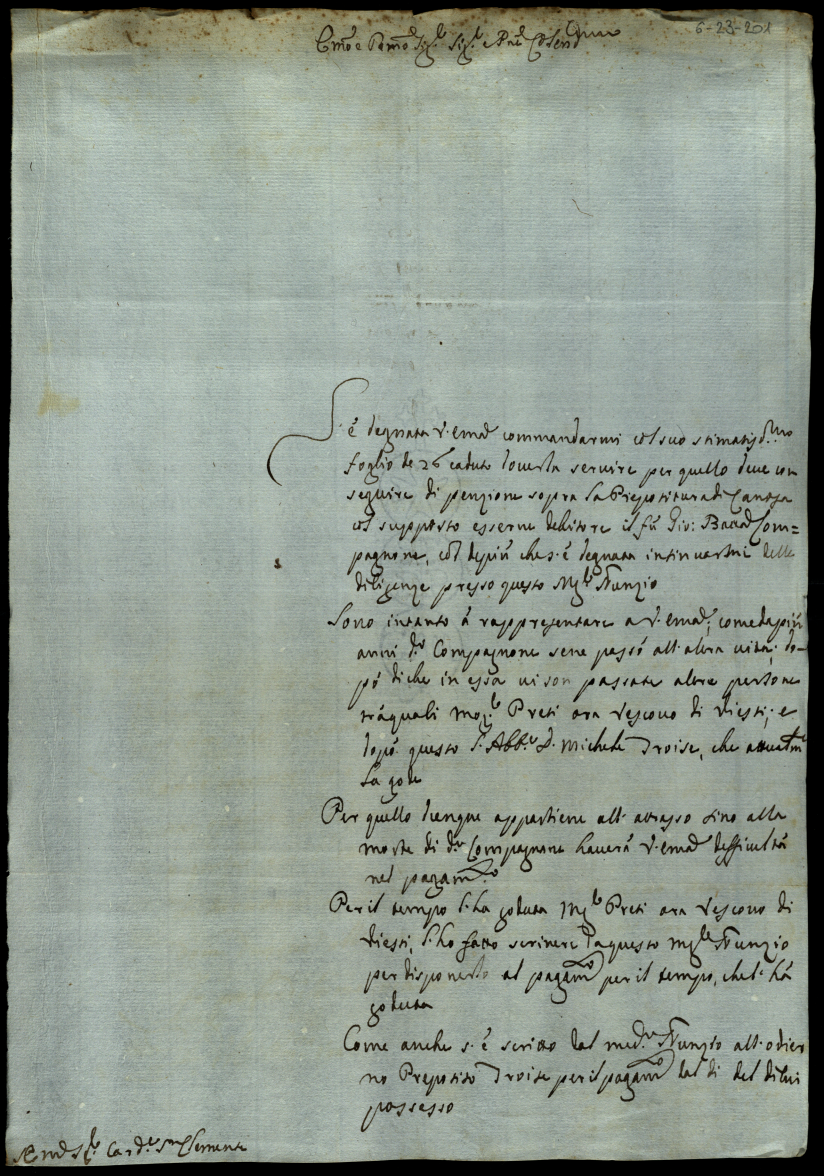 6-23-201
Emo e Rmo Sig.r Sig.r e Pne Colendmo
S'è degnata V. Emza commandarmi col suo stimatiss.mo
foglio de 26 caduto doverla servire per quello deve con
seguire di penzione sopra la Prepositura di Canosa
col supposto esserne debitore il fù Gio: Batta Com=
pagnone, col depiù che s'è degnata intimarmi delle
diligenze presso questo Mg.r Nunzio
Sono intanto à rappresentare a V. Emza, come da più
anni d.o Compagnone sene passò all'altra vita; do-
pò di che in essa vi son passate altre persone
trà quali Mog.r Preti ora Vescovo di Viesti, e
dopò questo l'Abb.e D. Michele Troise, che attualm.e
la gode
Per quello dunque appartiene all'atrasso sino alla
morte di d.o Compagnone haverà V. Emza difficultà
nel pagam.to
Per il tempo l'ha goduta Mg.r Preti ora Vescovo di
Viesti, l'hò fatto scrivere da questo Mg.re Nunzio
per disponerlo al pagam.to per il tempo, che l'hà
goduta
Come anche s'è scritto dal med.o Nunzio all'odier
no Preposito Troise per il pagam.to dal dì del di lui
possesso
Sig.r Card.e S. Clemente